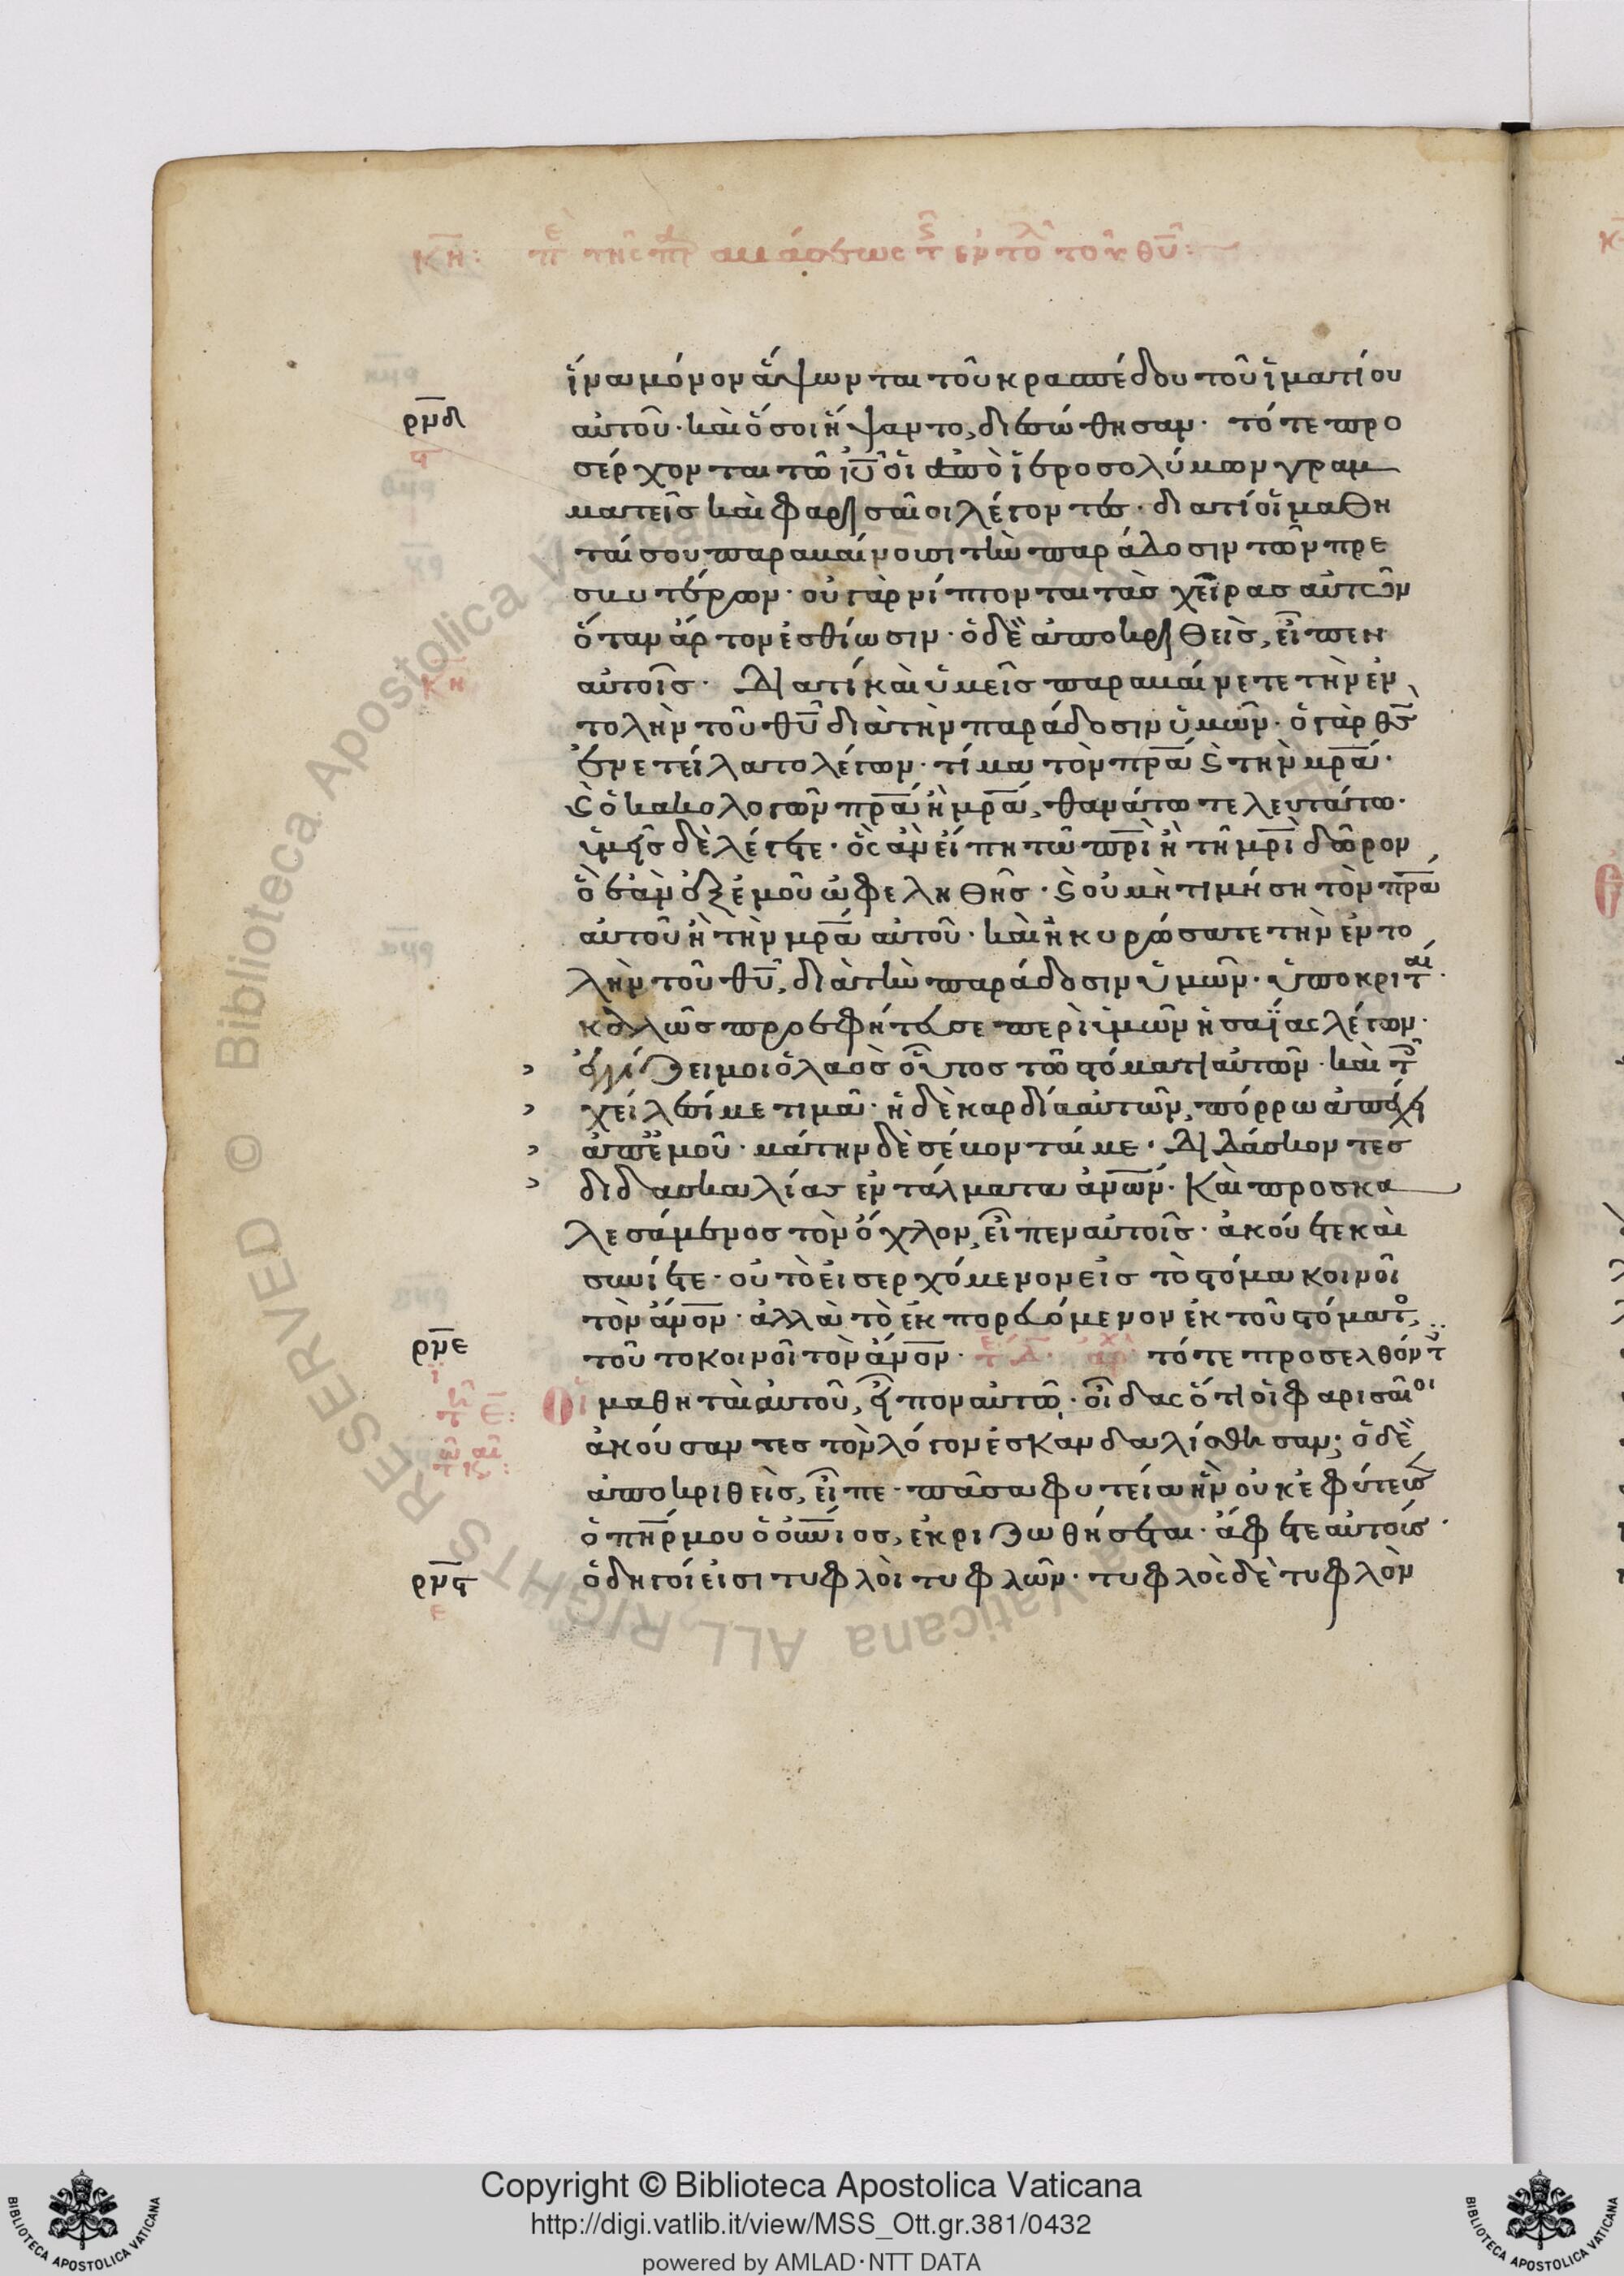 κη: πε τῆς π αβάσεως τ ἐντο τοῦ θυ:
ἵνα μόνον ἅψωνται τοῦ κρασπέδου τοῦ ἱματίου
ρμδ αὐτοῦ· καὶ ὅσοι ἥψαντο, διεσώθησαν· τότε προ
σέρχονται τῶ ιυ οἱ ἀπὸ ἱεροσολύμων γραμ
ματεῖς καὶ φαρισαῖοι λέγοντες· διατί οἱ μαθη
ταί σου παραβαίνουσι τὴν παράδοσιν τῶν πρε
σβυτέρων· οὐ γὰρ νίπτονται τὰς χεῖρας αὐτῶν
ὅταν ἄρτον ἐσθίωσιν· ὁ δὲ ἀποκριθεὶς, εἶπεν
κη αὐτοῖς· Διατί καὶ ὑμεῖς παραβαίνετε τὴν ἐν
τολὴν τοῦ θυ διὰ τὴν παράδοσιν ὑμῶν· ὁ γὰρ θς
ἐνετείλατο λέγων· τίμα τὸν πρα ϗ τὴν μρα·
ϗ ὁ κακολογῶν πρα ἢ μρα, θανάτω τελευτάτω·
ὑμεῖς δὲ λέγετε· ὃς ἂν εἴπη τῶ πρι ἢ τῆ μρι δῶρον
ὃ ἐὰν ἐξ ἐμοῦ ὠφεληθῆς· ϗ οὐ μὴ τιμήση τὸν πρα
αὐτοῦ ἢ τὴν μρα αὐτοῦ· καὶ ἠκυρώσατε τὴν ἐντο
λὴν τοῦ θυ, διὰ τὴν παράδοσιν ὑμῶν· ὑποκριταί·
καλῶς προεφήτευσε περὶ ὑμῶν ἡσαΐας λέγων·
ἐγγίζει μοι ὁ λαὸς οὗτος τῶ στόματι αὐτῶν· καὶ τοῖς
χείλεσί με τιμᾶ· ἡ δὲ καρδία αὐτῶν, πόρρω ἀπέχει
ἀπ' ἐμοῦ· μάτην δὲ σέβονταί με· Διδάσκοντες
διδασκαλίας ἐντάλματα ανων· Καὶ προσκα
λεσάμενος τὸν ὄχλον, εἶπεν αὐτοῖς· ἀκούετε καὶ
συνίετε· οὐ τὸ εἰσερχόμενον εἰς τὸ στόμα κοινοῖ
τὸν ανον· ἀλλὰ τὸ ἐκπορευόμενον ἐκ τοῦ στόματος,
ρμε τοῦτο κοινοῖ τὸν ανον· τότε προσελθόντες
οἱ μαθηταὶ αὐτοῦ, εἶπον αὐτῶ· οἶδας ὅτι οἱ φαρισαῖοι
ἀκούσαντες τὸν λόγον ἐσκανδαλίσθησαν; ὁ δὲ
ἀποκριθεὶς, εἶπε· πᾶσα φυτεία ἣν οὐκ ἐφύτευσεν
ὁ πηρ μου ὁ ουνιος, ἐκριζωθήσεται· ἄφετε αὐτούς·
ρμς ὁδηγοί εἰσι τυφλοὶ τυφλῶν· τυφλὸς δὲ τυφλὸν
Copyright © Biblioteca Apostolica Vaticana
http://digi.vatlib.it/view/MSS_Ott.gr.381/0432
powered by AMLAD·NTT DATA
BIBLIOTECA APOSTOLICA VATICANA
BIBLIOTECA APOSTOLICA VATICANA
© Biblioteca Apostolica Vaticana ALL RIGHTS RESERVED